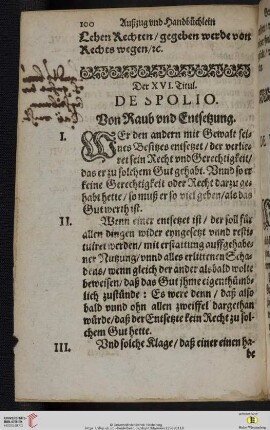 100 Außzug vnd Handbüchlein
Lehen Rechten / gegeben werde von
Rechts wegen / ꝛc.
Der XVI. Titul.
DE SPOLIO.
Von Raub vnd Entsetzung.
I. WEr den andern mit Gewalt sei-
nes Besitzes entsetzet / der verlie-
ret sein Recht vnd Gerechtigkeit /
das er zu solchem Gut gehabt. Vnnd so er
keine Gerechtigkeit oder Recht darzu ge-
habt hette / so muß er so viel geben / als das
Gut werth ist.
II. Wenn einer entsetzet ist / der soll für
allen dingen wider eyngesetzt vnnd resti-
tuiret werden / mit erstattung auffgehabe-
ner Nutzung / vnnd alles erlittenen Scha-
dens / wenn gleich der ander als bald wolte
beweisen / daß das Gut jhme eigenthümb-
lich zustünde : Es were denn / daß als-
bald vnnd ohn allen zweiffel dargethan
würde / daß der Entsetzte kein Recht zu sol-
chem Gut hette.
III. Vnd solche Klage / daß einer einen ha-
be